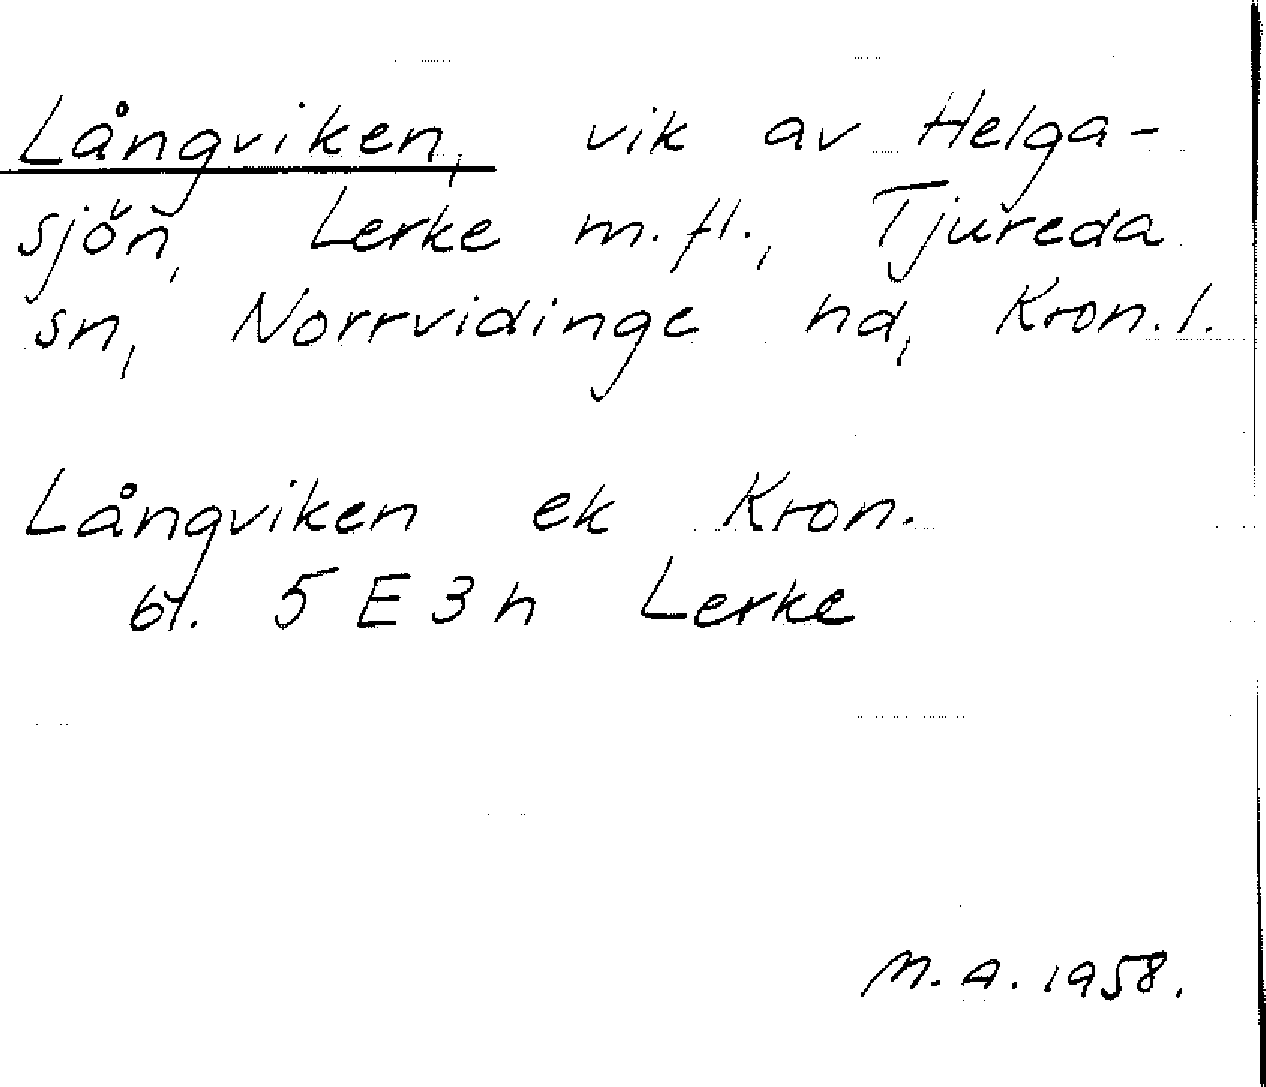 Långviken, vik av Helga-
sjön, Lerke m.fl., Tjureda
sn, Norrvidinge hd, Kron.l.
Långviken ek Kron.
bl. 5 E 3 h Lerke
M.A. 1958.